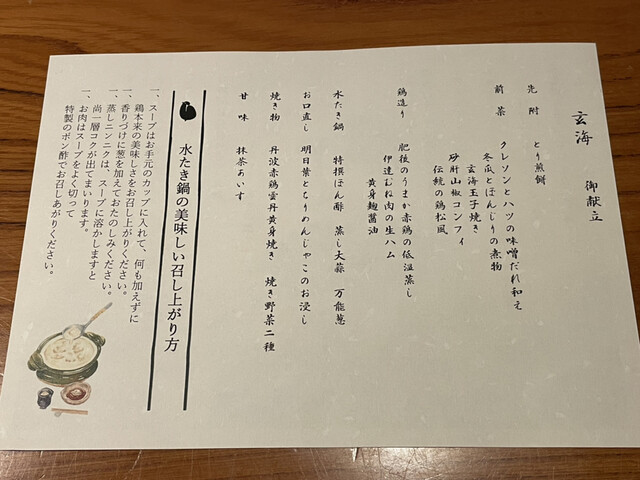 玄海 御献立
先附 とり煎餅
前菜 クレソンとハツの味噌だれ和え
冬瓜とぼんじりの煮物
玄海玉子焼き
砂肝山椒コンフィ
伝統の鶏松風
鶏造り 肥後のうまか赤鶏の低温蒸し
伊達むね肉の生ハム
黄身麹醤油
水たき鍋 特撰ぽん酢 蒸し大蒜 万能葱
お口直し 明日葉とちりめんじゃこのお浸し
焼き物 丹波赤鶏雲丹黄身焼き 焼き野菜二種
甘味 抹茶あいす
水たき鍋の美味しい召し上がり方
一、スープはお手元のカップに入れて、何も加えずに
鶏本来の美味しさをお召し上がりください。
一、香りづけに葱を加えておたのしみください。
一、蒸しニンニクは、スープに溶かしますと
尚一層コクが出てまいります。
一、お肉はスープをよく切って
特製のポン酢でお召しあがりください。